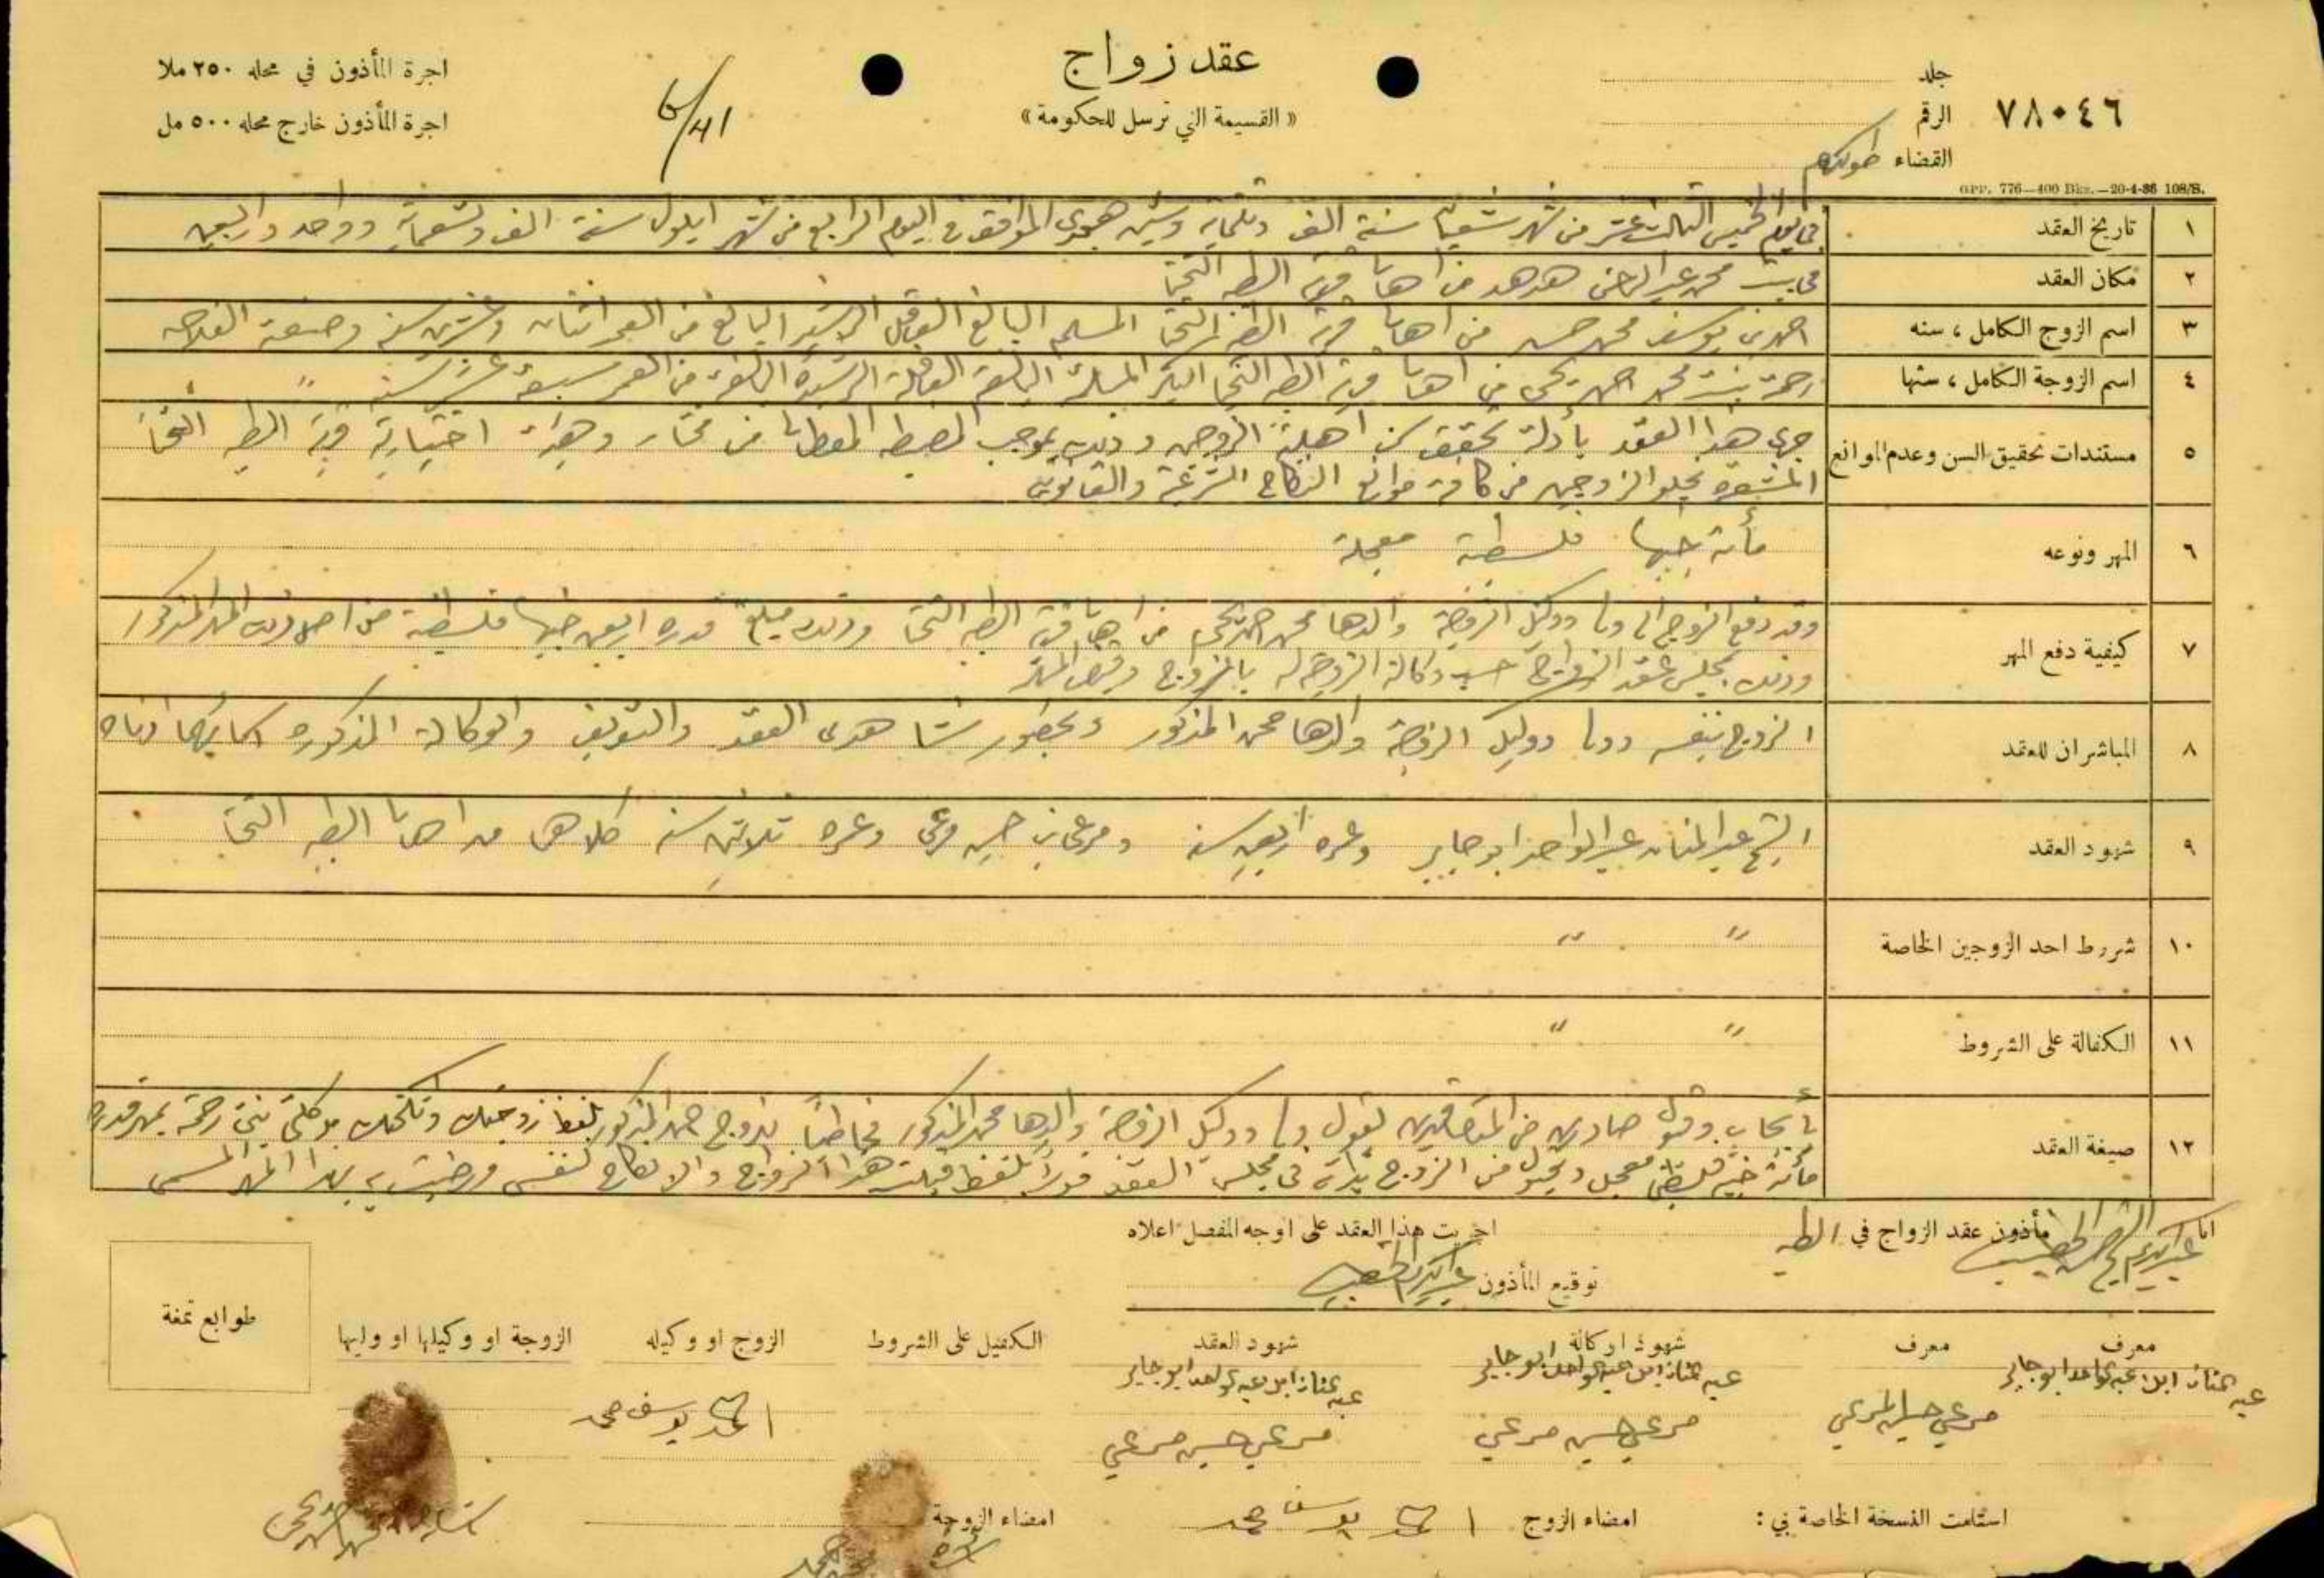 اجرة المأذون في محله ٢٥٠ ملا
اجرة المأذون خارج محله ٥٠٠ مل
٤١/
عقد زواج
« القسيمة التي ترسل للحكومة »
٧٨٠٤٦
جلد
الرقم
القضاء طولكرم
GPP. 776—400 Bks.—20-4-36 108/S.
١ تاريخ العقد في يوم الخميس الثالث عشر من شهر شعبان سنة الف وثلثماية وستين هجري الموافق في اليوم الرابع من شهر ايلول سنة الف وتسعماية وواحد واربعين
٢ مكان العقد في بيت محمد عبد الرحمن هدهد من اهالي قرية الطيره التحتا
٣ اسم الزوج الكامل ، سنه احمد بن يوسف محمد حسن من اهالي قرية الطيره التحتا المسلم البالغ العاقل الرشيد البالغ من العمر اثنان وعشرين سنة وصنعته الفلاحه
٤ اسم الزوجة الكامل ، سنها رحمة بنت محمد احمد يحيى من اهالي قرية الطيره التحتا البكر المسلمة البالغة العاقلة الرشيدة البالغة من العمر سبعة عشر سنة " "
٥ مستندات تحقيق السن وعدم الموانع جرى هذا العقد بأدلة تحقق سن اهلية الزوجين وذلك بموجب المضبطه المعطاة من مختار وهيئة اختيارية قرية الطيره التحتا
المشعرة بخلو الزوجين من كافة موانع النكاح الشرعية والقانونية
٦ المهر ونوعه مأئة جنيها فلسطينية معجلة
٧ كيفية دفع المهر وقد دفع الزوج الى ولي ووكيل الزوجة والدها محمد احمد يحيى من اهالي قرية الطيره التحتا وذلك مبلغ قدره اربعين جنيها فلسطينية من اصل ذلك المهر المذكور
وذلك بمجلس عقد الزواج حسب وكالة الزوجة له بالزواج وقبض المهر
٨ المباشران للعقد الزوج بنفسه وولي ووكيل الزوجة والدها محمد المذكور وبحضور شاهدي العقد والتعريف والوكالة المذكوره اسمائهما ادناه
٩ شهود العقد الشيخ عبد المنان عبد الواحد ابو جابر وعمره اربعين سنة ومرعي بن حسين مرعي وعمره ثلاثين سنة كلاهما من اهالي الطيره التحتا
١٠ شروط احد الزوجين الخاصة " "
١١ الكفالة على الشروط " "
١٢ صيغة العقد بأيجاب وقبول صادرين من المتعاقدين بقول ولي ووكيل الزوجة والدها محمد المذكور مخاطبا للزوج احمد المذكور بلفظ زوجتك وانكحتك موكلتي بنتي رحمة بمهر قدره
مأئة جنيه فلسطيني معجل وبقبول من الزوج بذاته في مجلس العقد فورا بلفظ قبلت هذا الزواج والانكاح لنفسي ورضيت به بهذا المهر المسمى
انا عبد الكريم الشيخ الخطيب مأذون عقد الزواج في الطيره اجريت هذا العقد على اوجه المفصل اعلاه
توقيع المأذون عبد الكريم الخطيب
طوابع تمغة
معرف معرف شهود اوكالة شهود العقد الكفيل على الشروط الزوج او وكيله الزوجة او وكيلها او وليها
عبد المنان ابن عبد الواحد ابو جابر عبد المنان ابن عبد الواحد ابو جابر عبد المنان ابن عبد الواحد ابو جابر
مرعي حسين المرعي مرعي حسين مرعي مرعي حسين مرعي احمد يوسف محمد
استلمت النسخة الخاصة بي : امضاء الزوج احمد يوسف محمد امضاء الزوجة